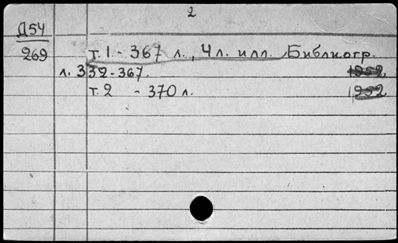 2
Д54
269 т.1 - 367 л., 4 л. илл. Библиогр.
л. 352-367. 1952
т.2 - 370 л. 1952